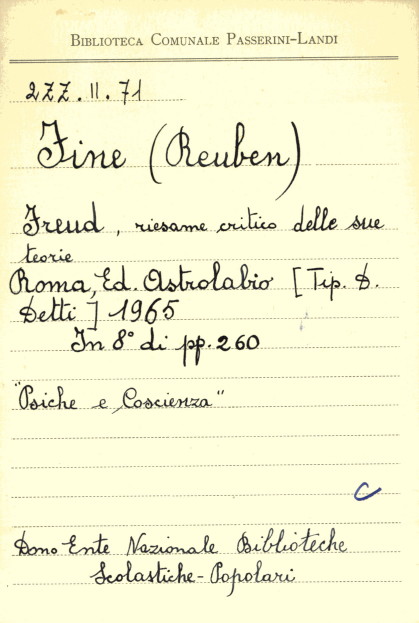 BIBLIOTECA COMUNALE PASSERINI-LANDI
2ZZ.II.71
Fine (Reuben)
Freud, riesame critico delle sue
teorie
Roma, Ed. Astrolabio [Tip. D.
Detti] 1965
In 8° di pp. 260
"Psiche e Coscienza"
C
Dono Ente Nazionale Biblioteche
Scolastiche-Popolari